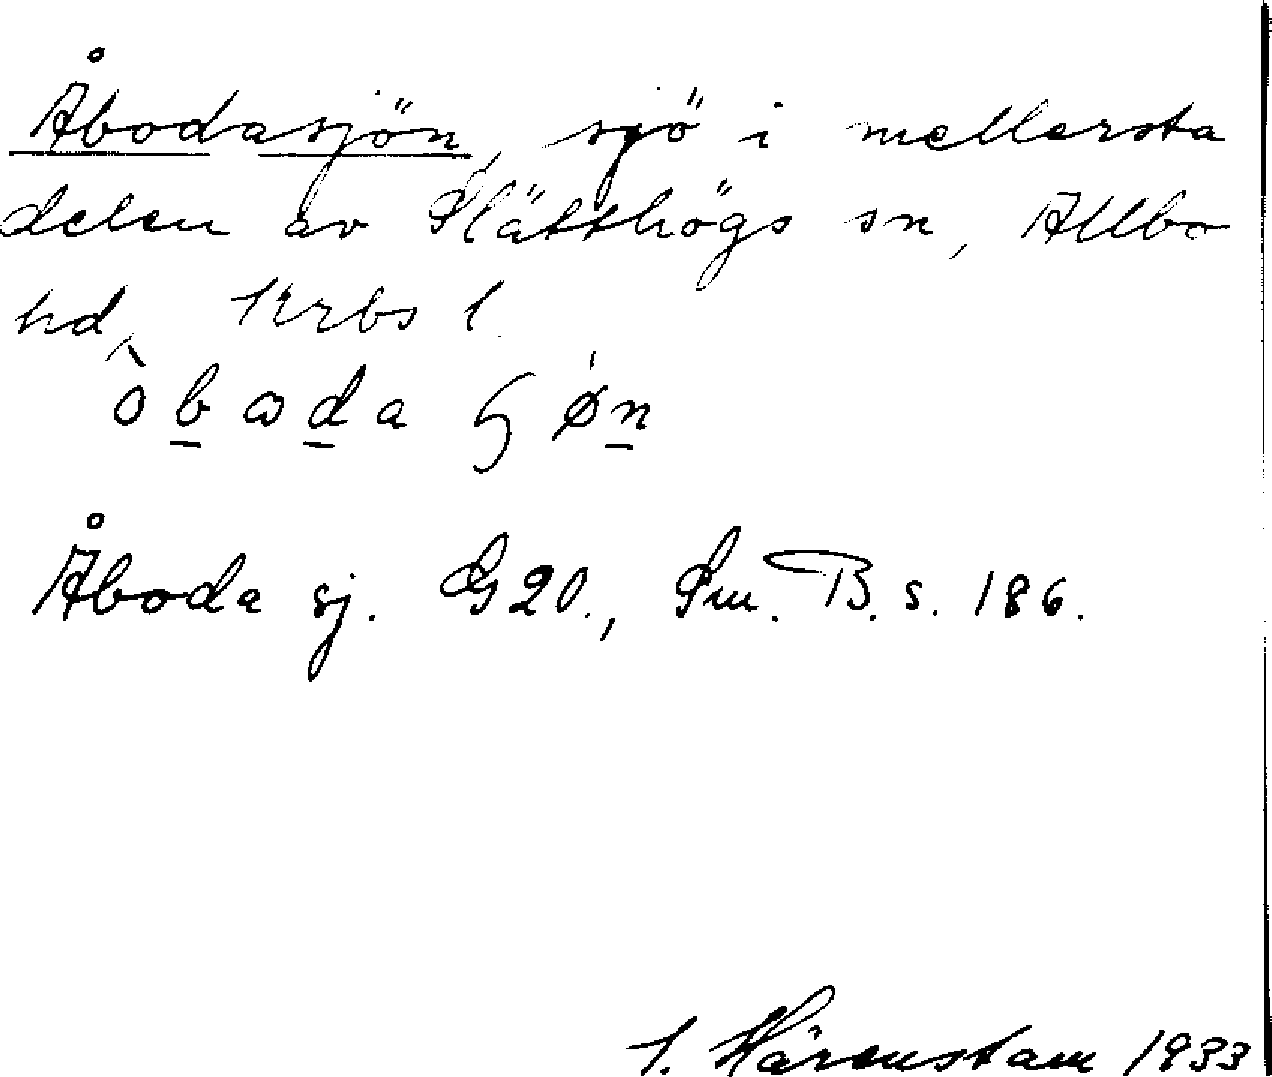 Åbodasjön, sjö i mellersta
delen av Slätthögs sn, Allbo
hd, Krbs l.
ôbωda ɧøn
Åboda sj. G20., Sm. B. s. 186.
I. Härenstam 1933